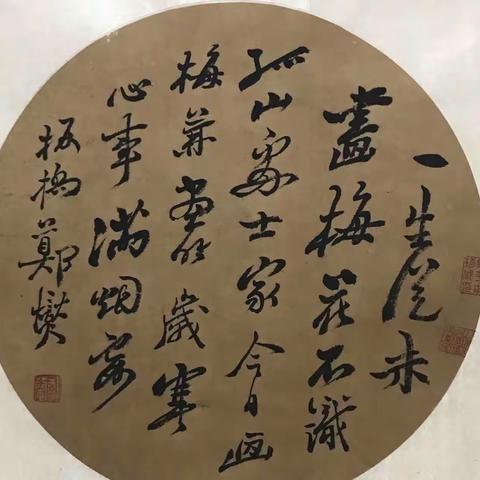 一生從未
畫梅花不識
孤山處士家今日画
梅兼畫竹歲寒
心事滿烟霞
板橋鄭燮